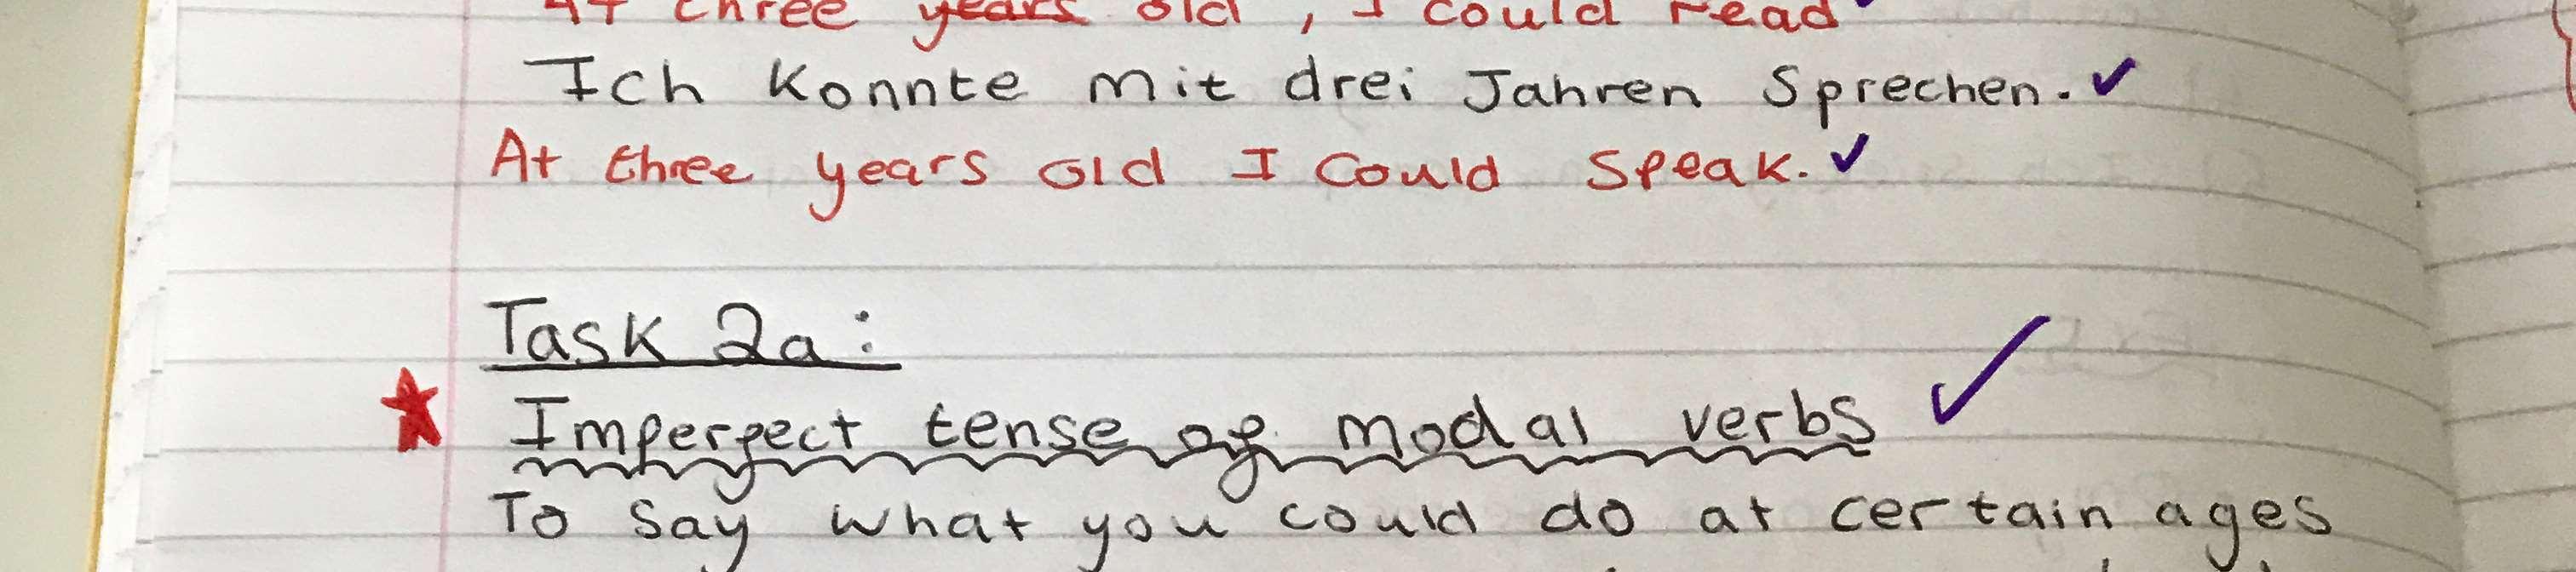 At three years old, I could read
Ich Konnte mit drei Jahren Sprechen.
At three years old I could speak.
Task 2a:
Imperfect tense of modal verbs
To say what you could do at certain ages